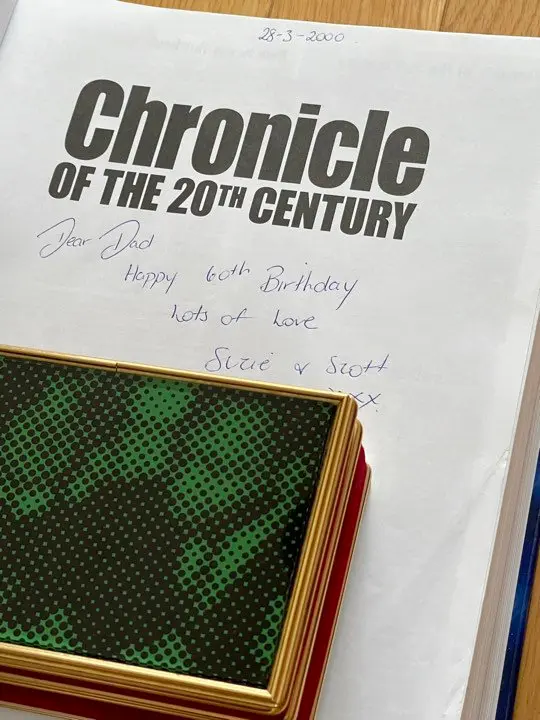 28-3-2000
Chronicle
OF THE 20TH CENTURY
Dear Dad
Happy 60th Birthday
Lots of Love
Suzie & Scott
xxx